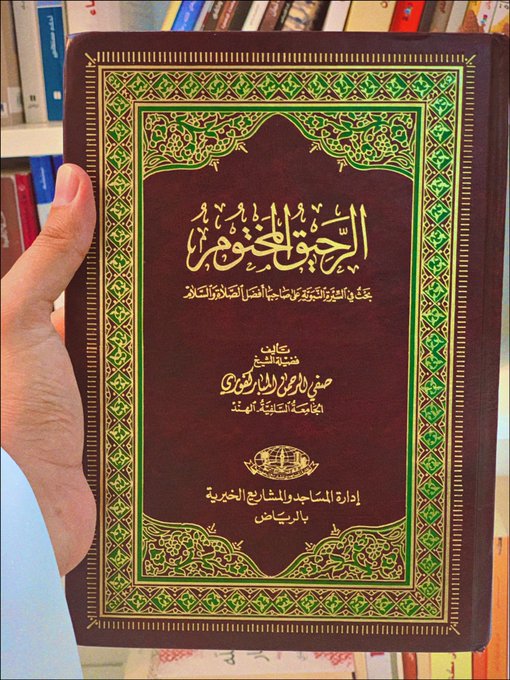 الرَّحِيقُ المَخْتُومُ
بَحْثٌ فِي السِّيرَةِ النَّبَوِيَّةِ عَلَى صَاحِبِهَا أَفْضَلُ الصَّلَاةِ وَالسَّلَامِ
تأليف
فضيلة الشيخ
صفي الرحمن المباركفوري
الجَامعَة السَّلفِيَّة. الهِنْد
إدارة المساجد والمشاريع الخيرية
بالرياض